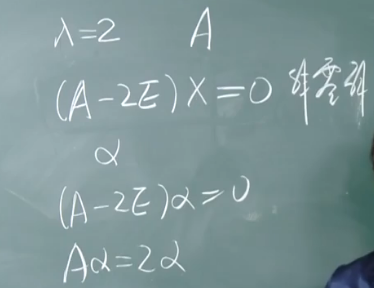 λ=2 A
(A-2E)X=0 非零解
α
(A-2E)α=0
Aα=2α